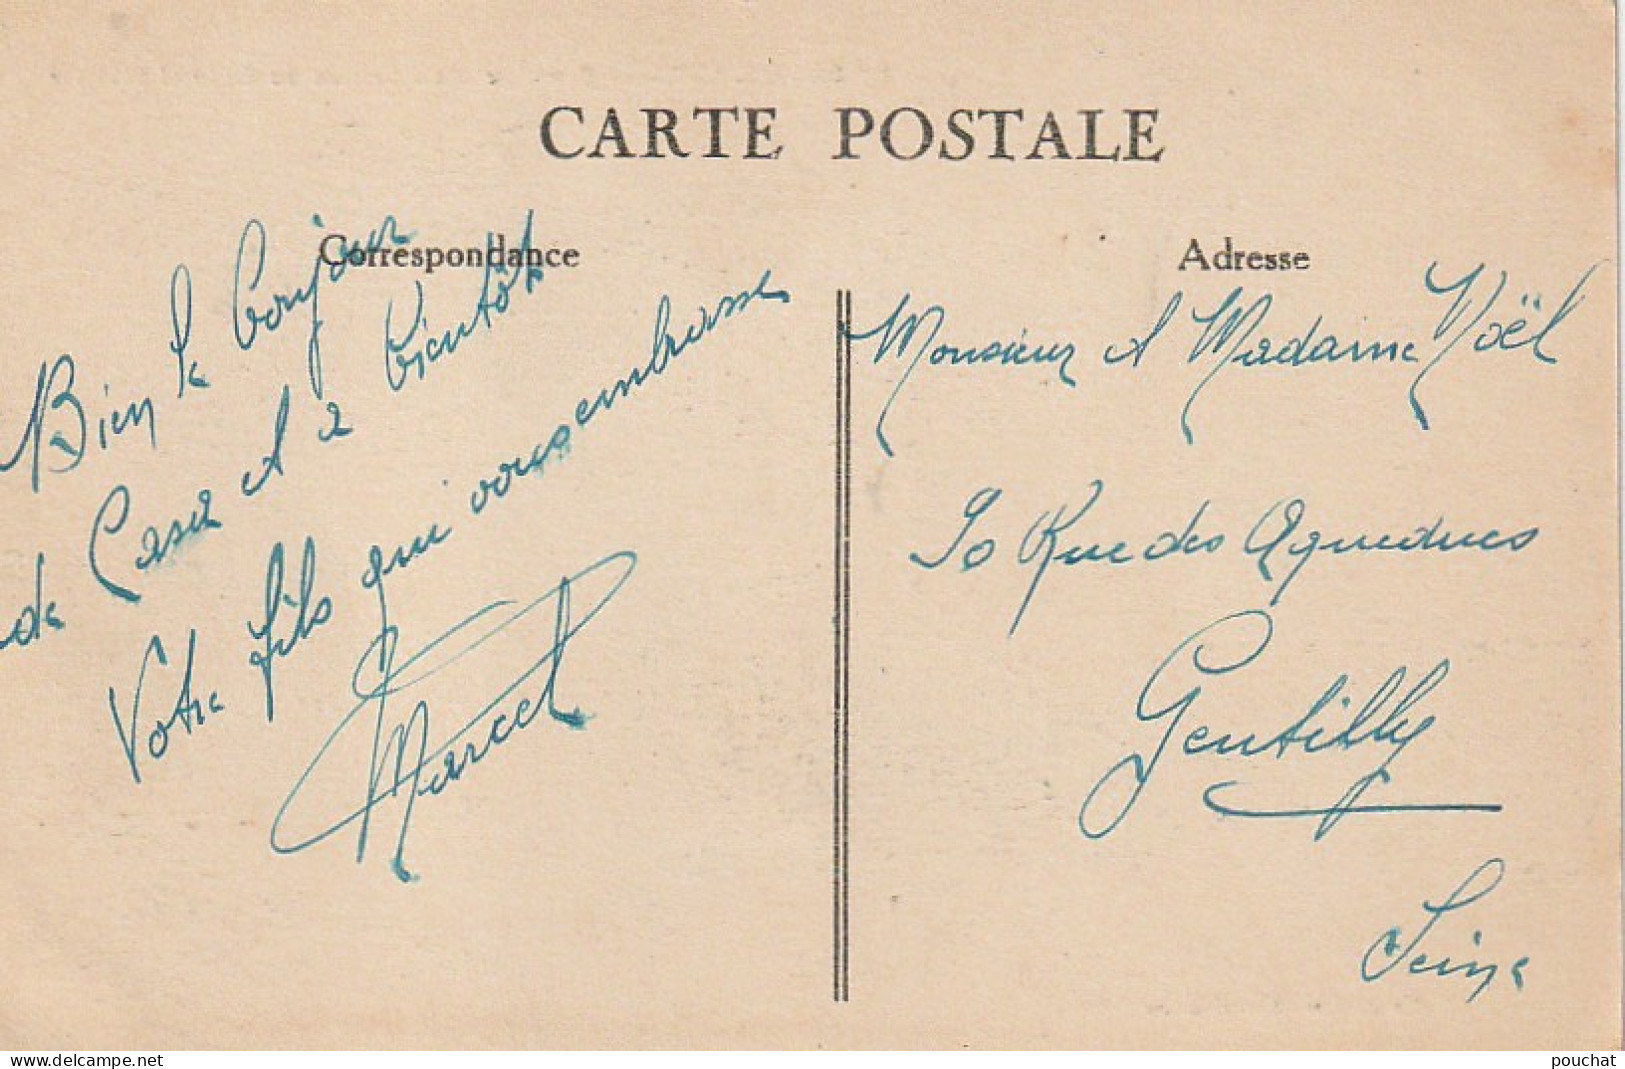 CARTE POSTALE
Correspondance
Bien le bonjour
de Casa et à bientôt
Votre fils qui vous embrasse
Marcel
Adresse
Monsieur et Madame Noël
Rue des Aqueducs
Gentilly
Seine
www.delcampe.net
pouchat